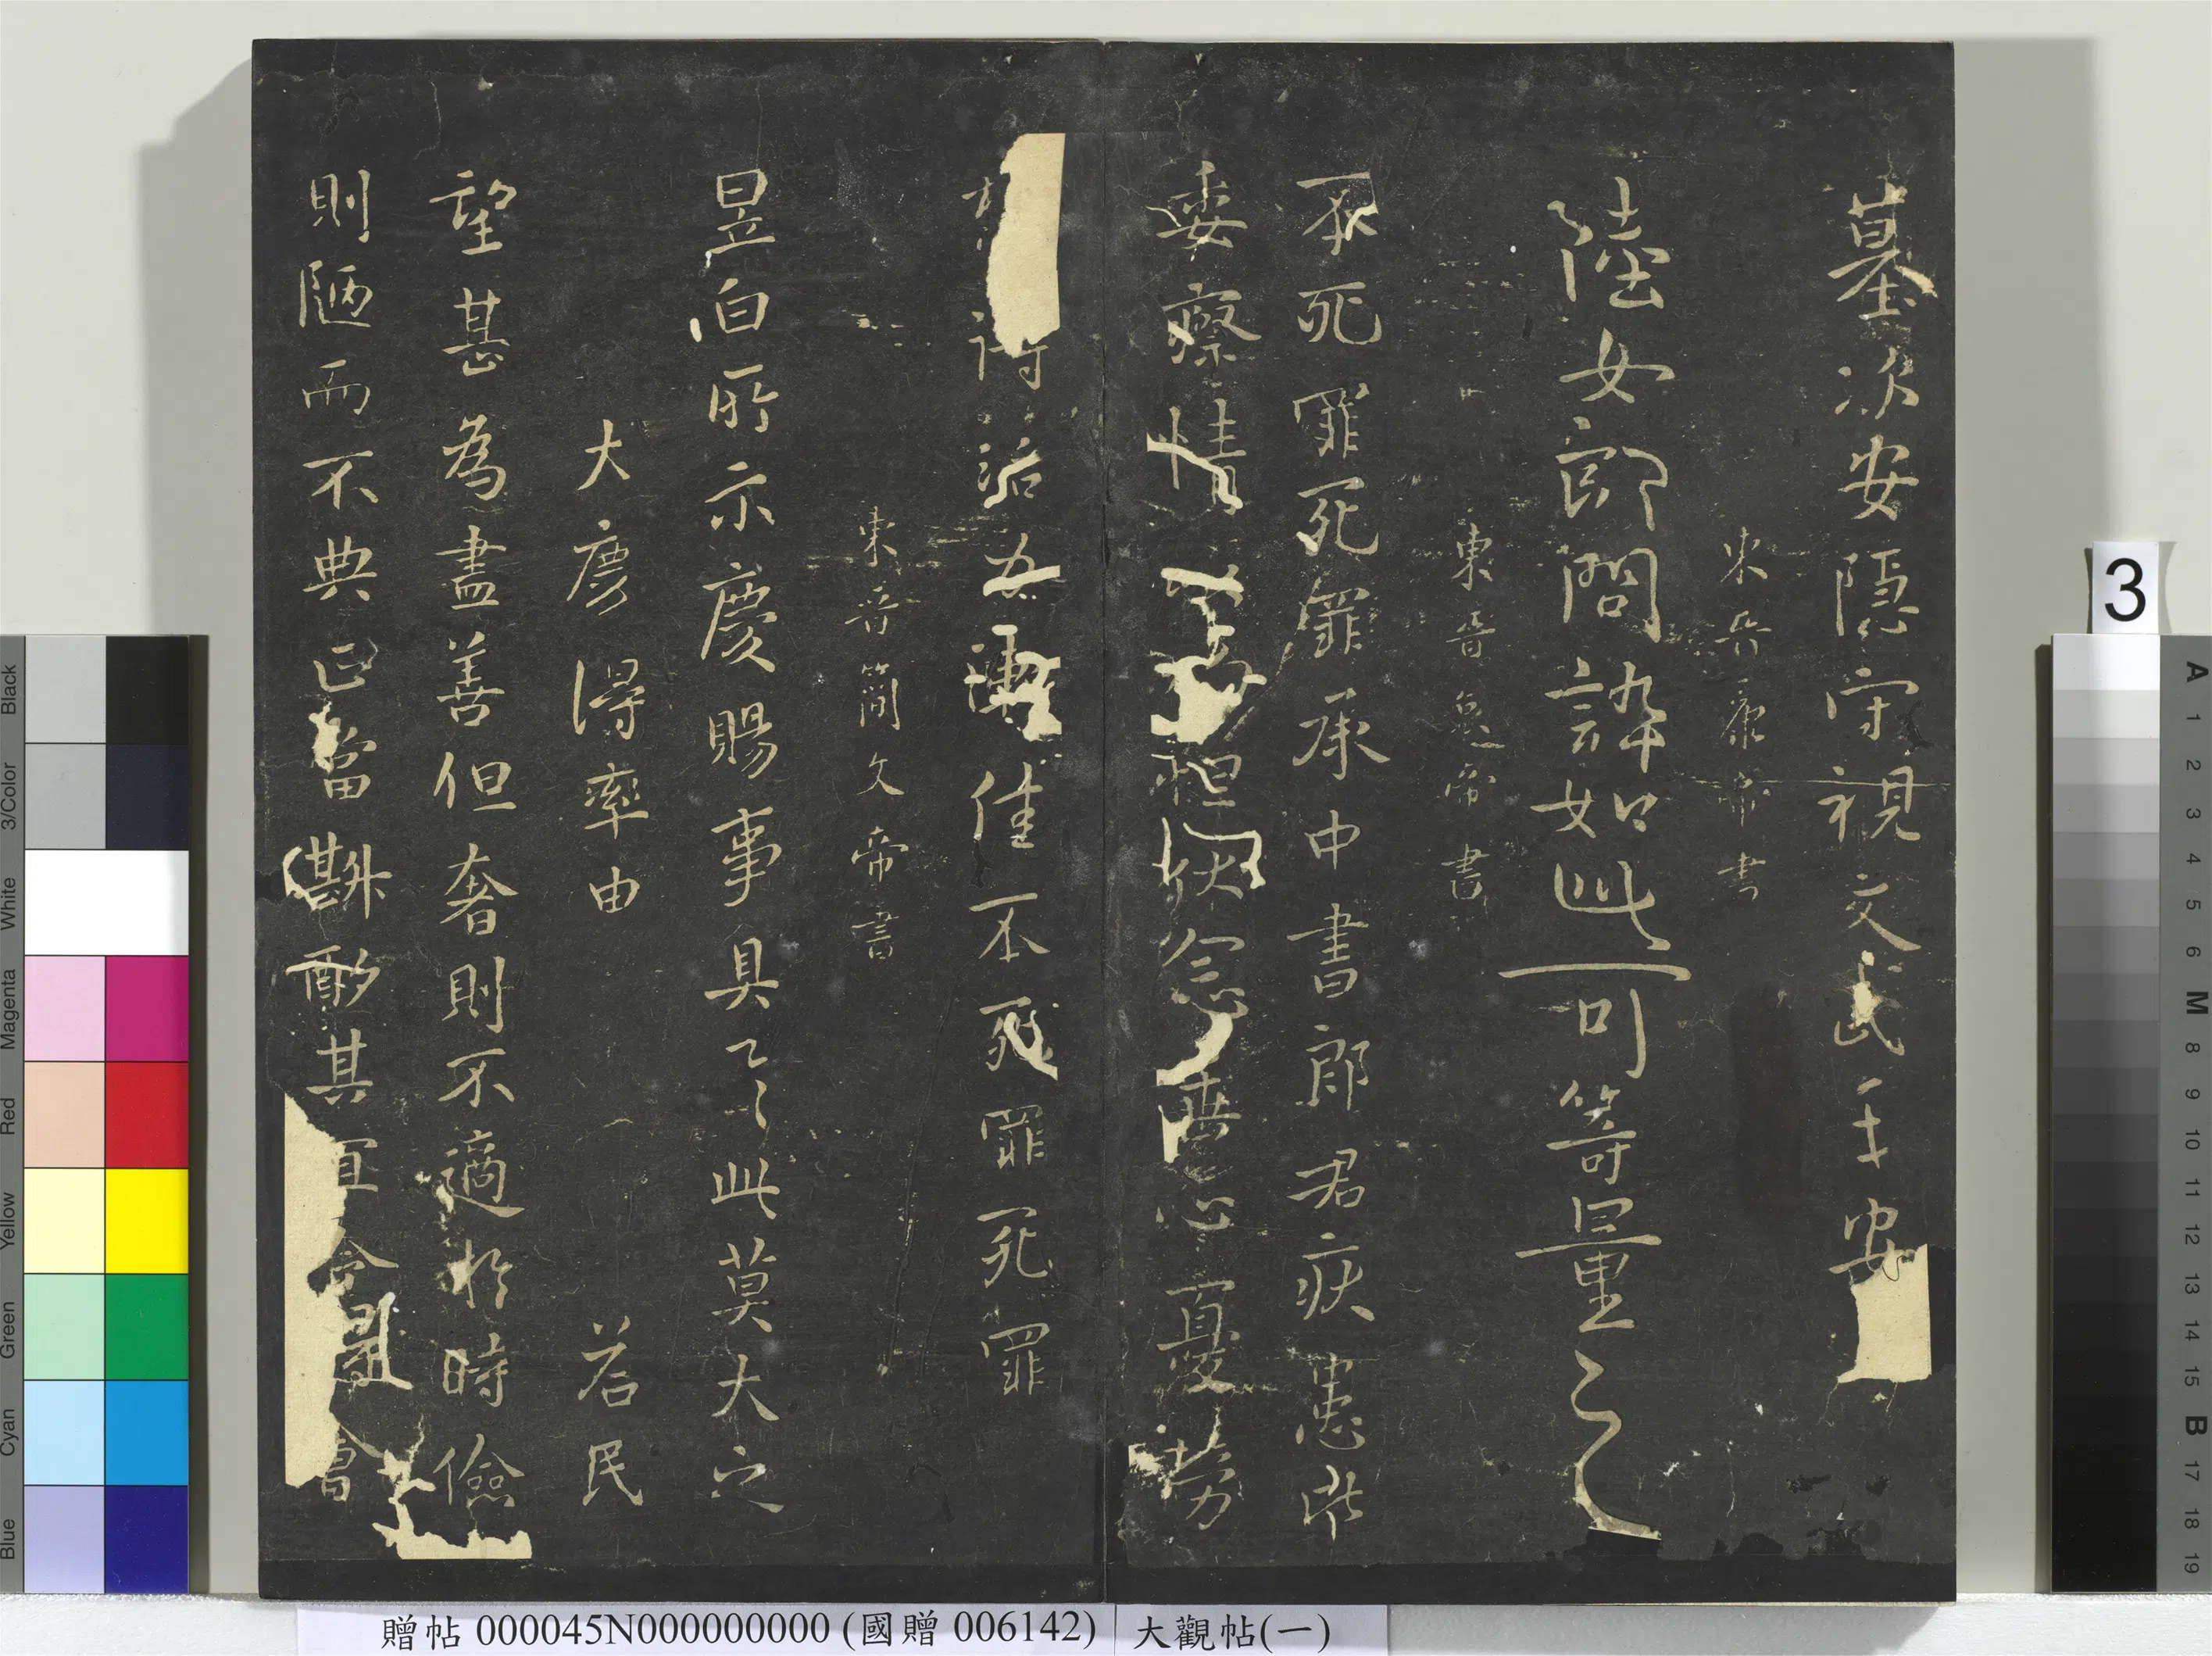 墓次安隱守視文武千安
東晉康帝書
陸女郎問誶如此可等量
東晉哀帝書
不死罪死罪承中書郎君疾患此
委察情 憂勞
治 佳不死罪死罪
東晉簡文帝書
昱白所示慶賜事具之此莫大之
大慶得率由 若民
望甚為盡善但奢則不適於時儉
則陋而不典正當斟酌其宜令 會
贈帖 000045N000000000 (國贈 006142) 大觀帖(一)
3
Black
3/Color
White
Magenta
Red
Yellow
Green
Cyan
Blue
A 1 2 3 4 5 6 M 8 9 10 11 12 13 14 15 B 17 18 19